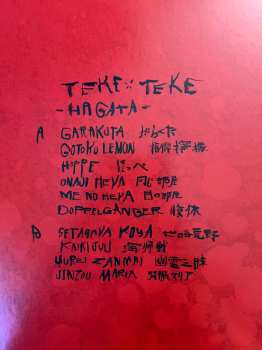 TEKE::TEKE
-HAGATA-
A GARAKUTA がらくた
GOTOKU LEMON
HOPPE ほっぺ
ONAJI HEYA 同じ部屋
ME NO HEYA 目の部屋
DOPPELGÄNGER
B SETAGAYA KOYA 世田谷荒野
KAIKIJUU
YUREI ZANMAI 幽霊三昧
JINZOU MARIA